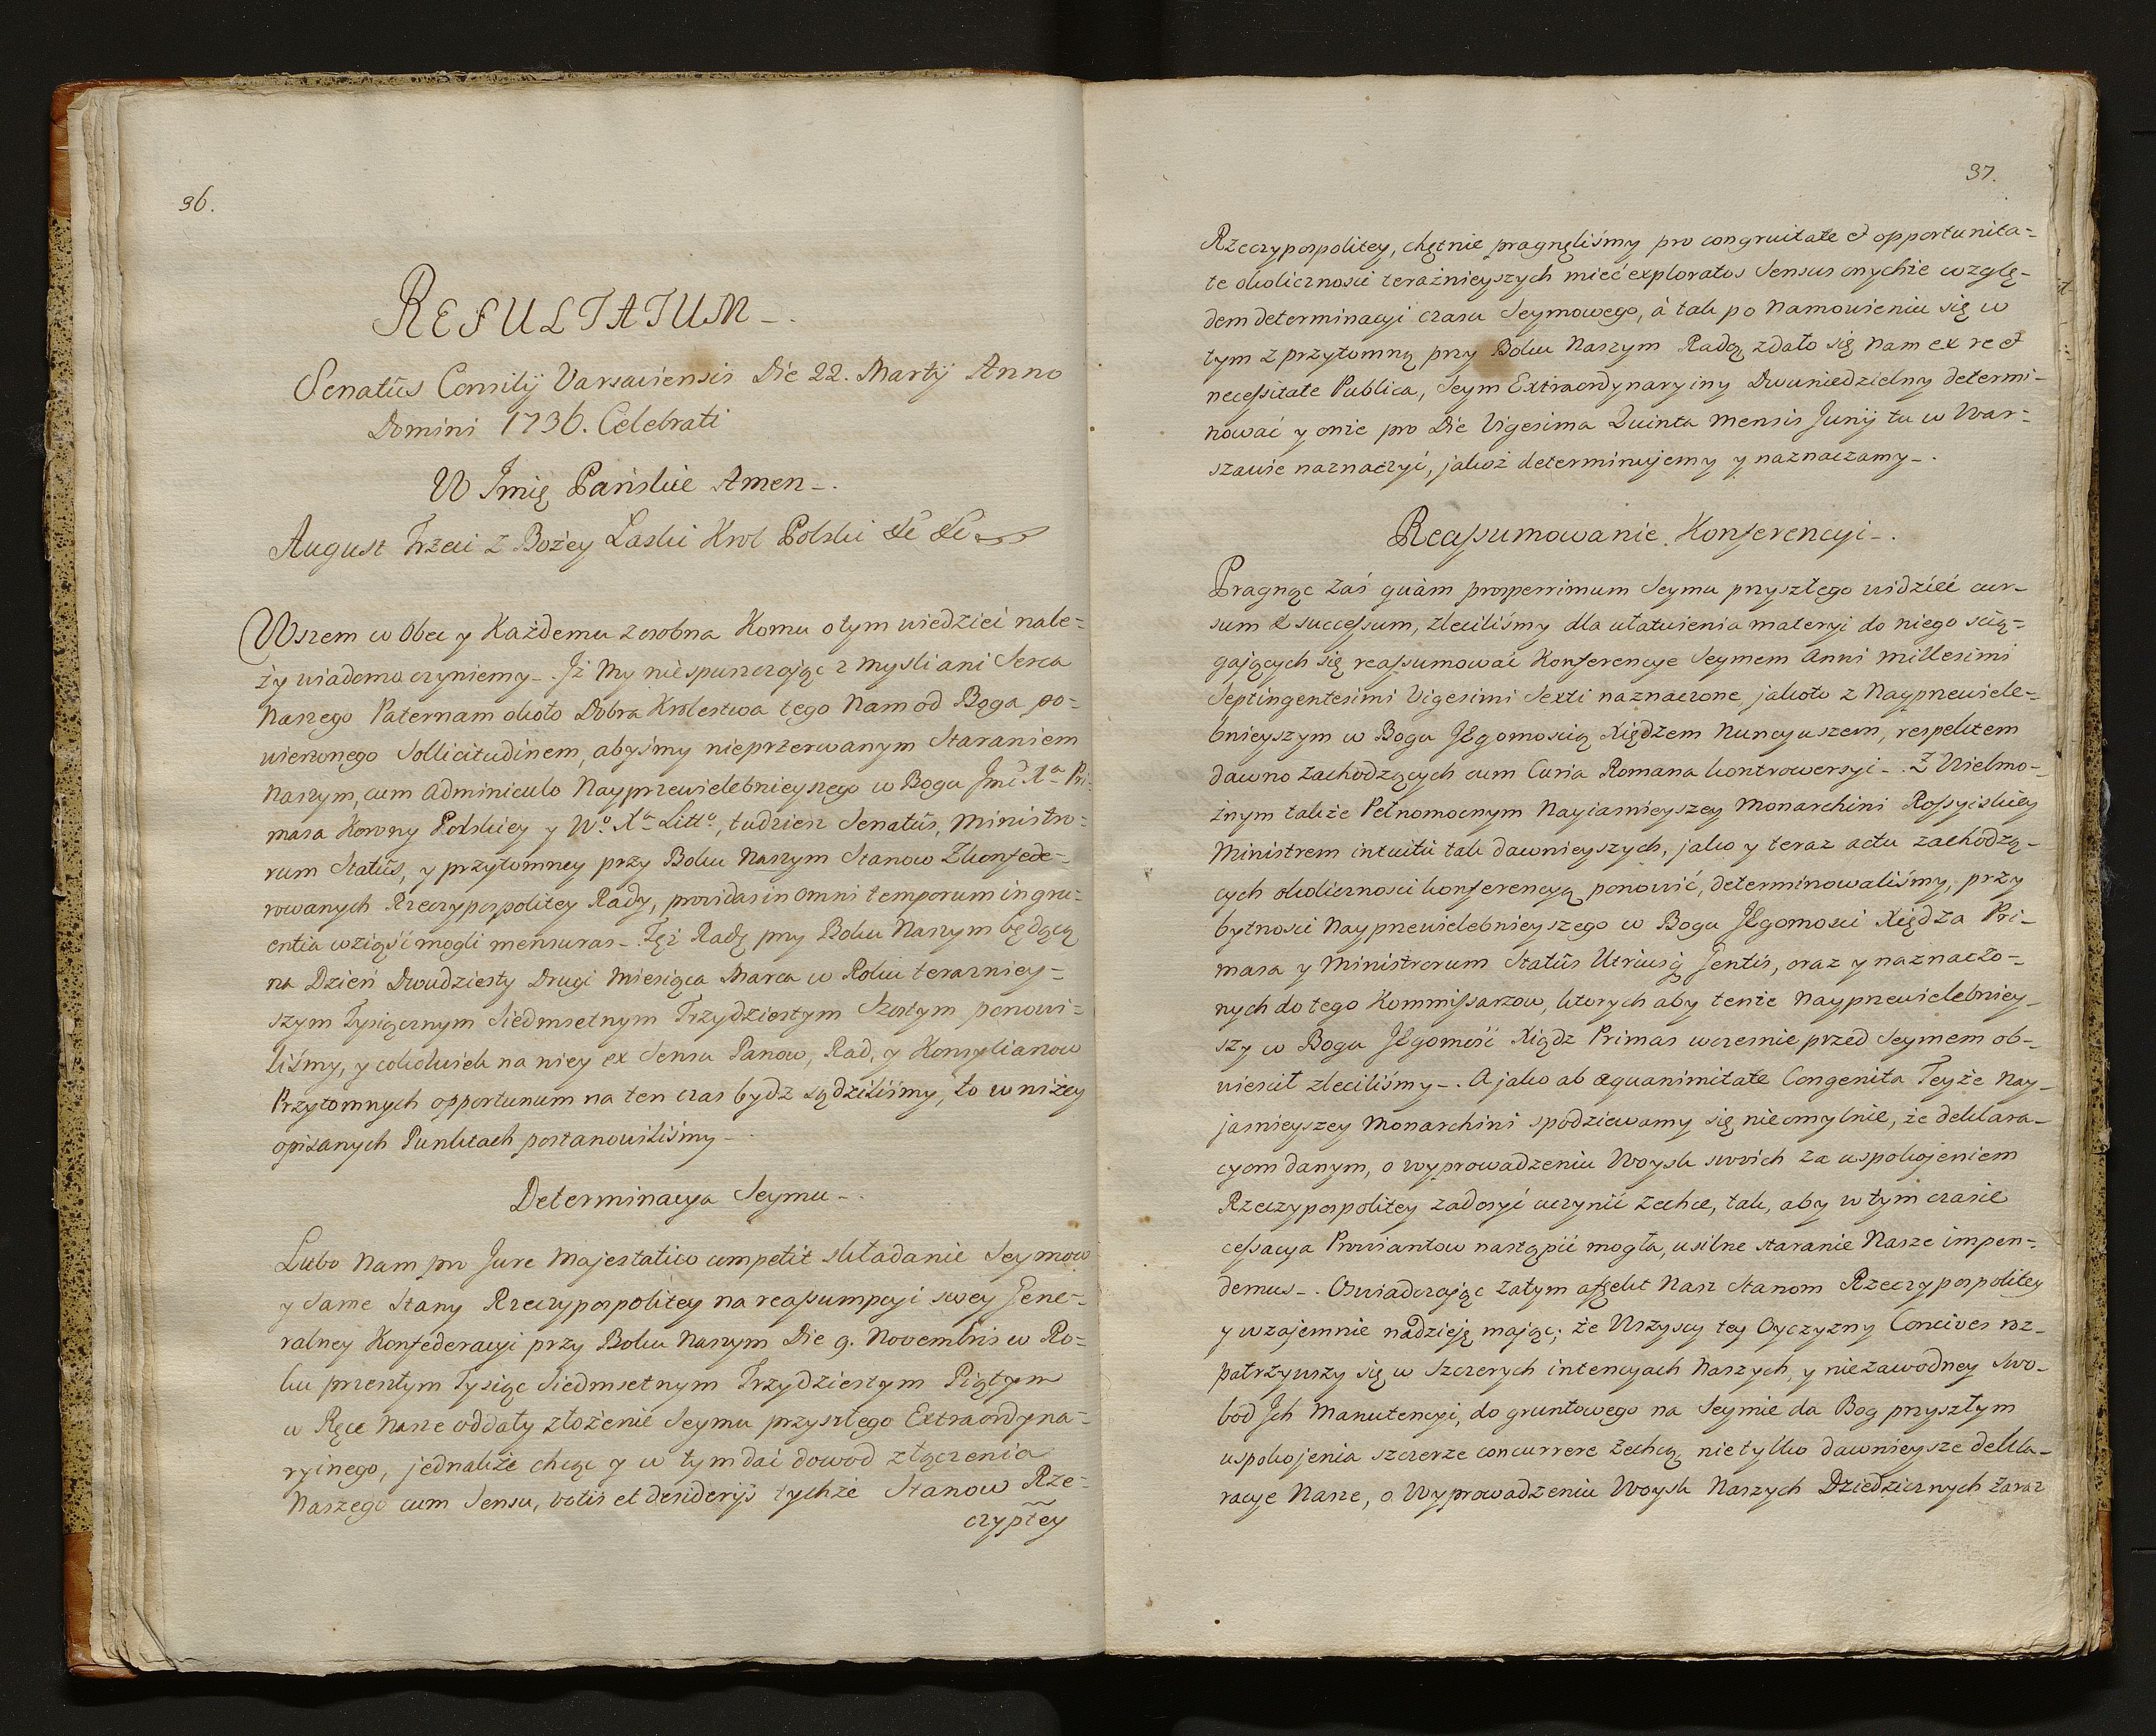 36.
RESULTATUM -.
Senatûs Consilij Varsaviensis Die 22. Martij Anno
Domini 1736. Celebrati
W Jmię Pańskie Amen -.
August Trzeci z Bożey Łaski Krol Polski &c &c
Wszem w Obec y Każdemu zosobna Komu o tym wiedzieć nale=
ży wiadomo czyniemy -. Jż My nie spuszczając z mysli ani Serca
Naszego Paternam około Dobra Krolestwa tego Nam od Boga po=
wierzonego Sollicitudinem, abyśmy nieprzerwanym Staraniem
Naszym, cum Adminiculo Nayprzewielebnieyszego w Bogu Jmci Xa Pri=
masa Korony Polskiey y Wo. Xa Litto., tudziesz Senatûs, Ministro=
rum Statûs, y przytomney przy Boku Naszym Stanow Zkonfede=
rowanych Rzeczypospolitey Rady, providas in omni temporum ingru=
entia wziąść mogli mensuras -. Tęż Radę przy Boku Naszym będącą
na Dzień Dwudziesty Drugi Miesiąca Marca w Roku terazniey=
szym Tysiącznym Siedmsetnym Trzydziestym Szostym ponowi=
liśmy, y cokolwiek na niey ex Sensu Panow, Rad, y Konsyliarzow
Przytomnych opportunum na ten czas bydz sądziliśmy, to w niżey
opisanych Punktach postanowiliśmy -.
Determinacya Seymu -.
Lubo Nam pro Jure Majestatico competit składanie Seymow
y Same Stany Rzeczypospolitey na reassumpcyi swey Gene=
ralney Konfederacyi przy Boku Naszym Die 9. Novembris w Ro=
ku przeszłym Tysiąc Siedmsetnym Trzydziestym Piątym
w Ręce Nasze oddały złożenie Seymu przyszłego Extraordyna=
ryinego, jednakże chcąc y w tym dać dowod złączenia
Naszego cum Sensu, votis et desiderijs tychże Stanow Rze=
czyptey
37.
Rzeczypospolitey, chętnie pragnęliśmy pro congruitate et opportunita=
te okolicznosci teraźnieyszych mieć exploratos Sensus onychże wzglę=
dem determinacyi czasu Seymowego, à tak po Namowieniu się w
tym z przytomną przy Boku Naszym Radą zdało się Nam ex re et
necessitate Publica, Seym Extraordynaryiny Dwuniedzielny determi=
nować y onże pro Die Vigesima Quinta Mensis Junij tu w War=
szawie naznaczyć, jakoż determinujemy y naznaczamy -.
Reassumowanie Konferencyi -.
Pragnąc zaś quàm prosperrimum Seymu przyszłego widzieć cur=
sum & successum, zleciliśmy dla ułatwienia materyi do niego scią=
gających się reassumować Konferencye Seymem Anni Millesimi
Septingentesimi Vigesimi Sexti naznaczone, jakoto z Nayprzewiele=
bnieyszym w Bogu JEgomoscią Xiędzem Nuncyuszem, respektem
dawno zachodzących cum Curia Romana kontrowersyi -. Z Wielmo=
żnym także Pełnomocnym Nayiasnieyszey Monarchini Rossyiskiey
Ministrem intuitu tak dawnieyszych, jako y teraz actu zachodzą=
cych okolicznosci konferencyą ponowić, determinowaliśmy, przy
bytnosci Nayprzewielebnieyszego w Bogu JEgomosci Xiędza Pri=
masa y Ministrorum Statûs Utriusq Gentis, oraz y naznaczo=
nych do tego Kommissarzow, ktorych aby tenże Nayprzewielebniey=
szy w Bogu JEgomość Xiądz Primas wczesnie przed Seymem ob=
wiescił zleciliśmy -. A jako ab æquanimitate Congenita Teyże Nay=
jasnieyszey Monarchini spodziewamy się nieomylnie, że deklara=
cyom danym, o wyprowadzeniu Woysk swoich za uspokojeniem
Rzeczypospolitey zadosyć uczynić zechce, tak, aby w tym czasie
cessacya Prowiantow nastąpić mogła, usilne staranie Nasze impen=
demus -. Oswiadczając zatym affekt Nasz Stanom Rzeczypospolitey
y wzajemnie nadzieję mając; że Wszyscy tey Oyczyzny Concives roz=
patrzywszy się w Szczerych intencyach Naszych, y niezawodney Swo=
bod Jch Manutencyi, do gruntowego na Seymie da Bog przyszłym
uspokojenia szczerze concurrere zechcą, nie tylko dawnieysze dekla=
racye Nasze, o Wyprowadzeniu Woysk Naszych Dziedzicznych zaraz